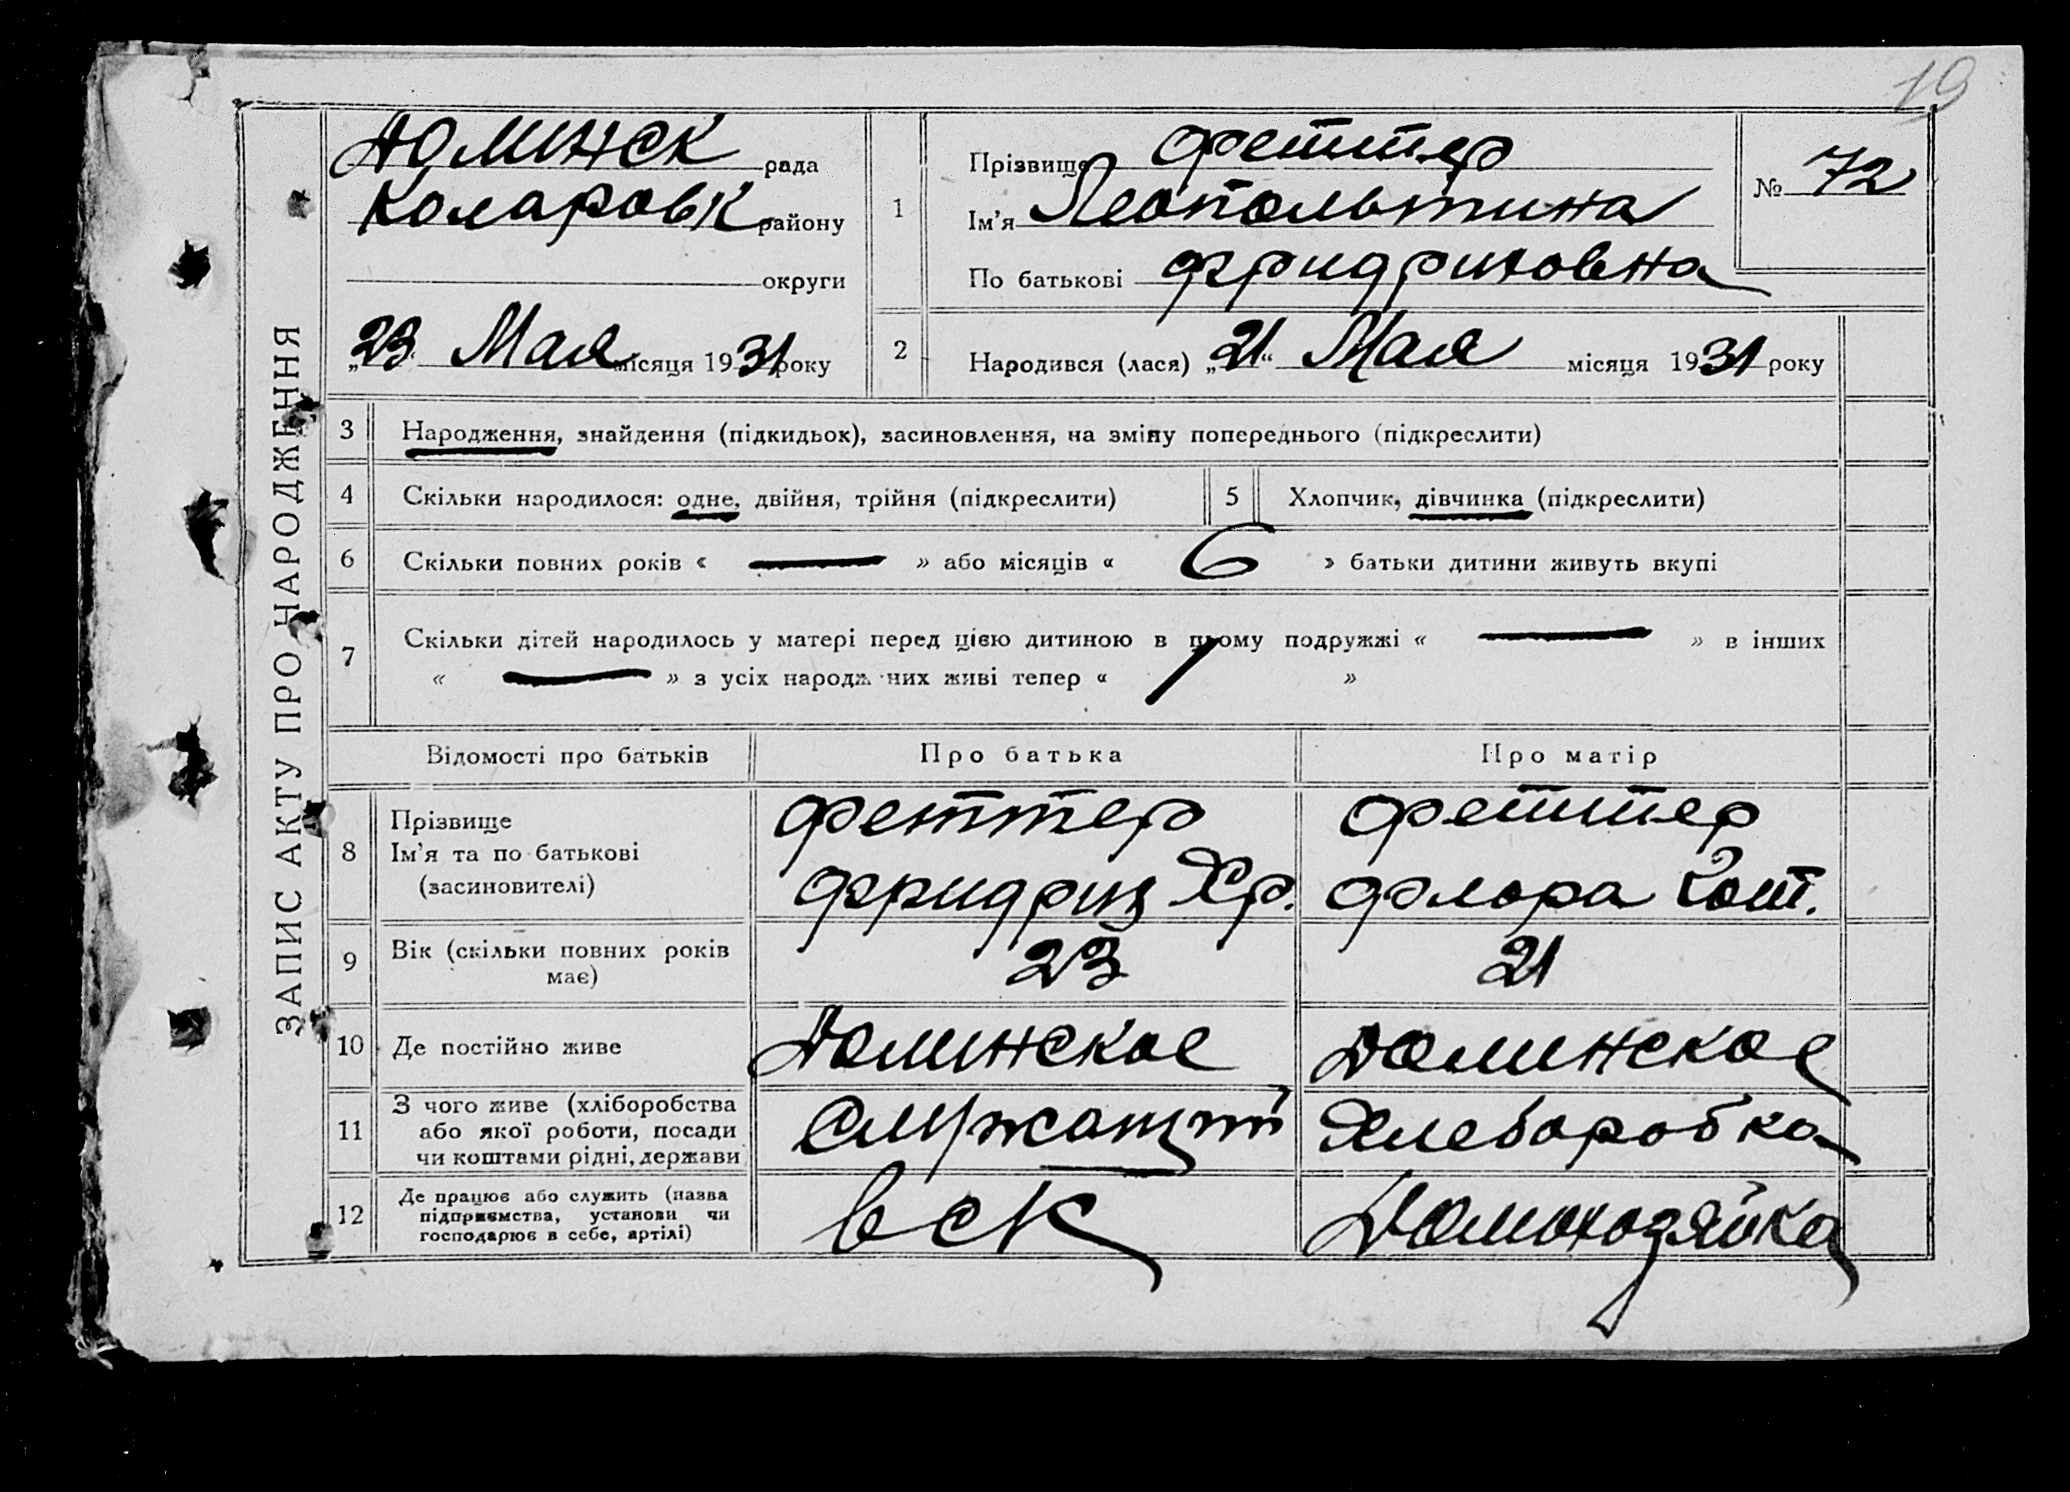 19
ЗАПИС АКТУ ПРО НАРОДЖЕННЯ
Долинск рада
Коларовк району
округи
„23“ Мая місяця 1931 року
1
Прізвище Феттер
Ім'я Леопольтина
По батькові Фридриховна
№ 72
2 Народився (лася) „21“ Мая місяця 1931 року
3 Народження, знайдення (підкидьок), засиновлення, на зміну попереднього (підкреслити)
4 Скільки народилося: одне, двійня, трійня (підкреслити) 5 Хлопчик, дівчинка (підкреслити)
6 Скільки повних років « — » або місяців « 6 » батьки дитини живуть вкупі
7 Скільки дітей народилось у матері перед цією дитиною в цьому подружжі « — » в інших
« — » з усіх народж них живі тепер « »
Відомості про батьків Про батька Про матір
8 Прізвище
Ім'я та по батькові
(засиновителі)
Феттер
Фридрих Хр.
Феттер
Флора Гот.
9 Вік (скільки повних років
має)
23
21
10 Де постійно живе Долинское Долинское
11 З чого живе (хліборобства
або якої роботи, посади
чи коштами рідні, держави
Служащий
Хлеборобка
12 Де працює або служить (назва
підприємства, установи чи
господарює в себе, артілі)
вск
Домохозяйка